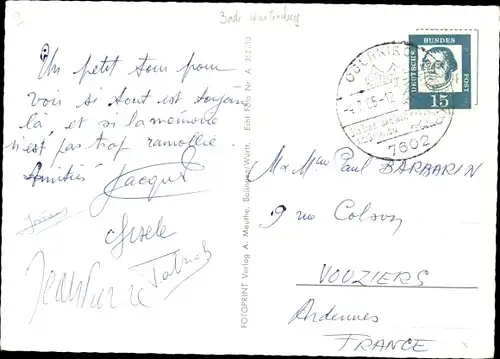 Bade Wurtemberg
Un petit tour pour
voir si tout est toujours
là et si la mémoire
n'est pas trop ramollie.
Amitiés Jacques
Gisèle
Jean Pierre
Patrick
FOTOPRINT Verlag A. Mauthe, Balingen/Württ. Echt Foto Nr. A
OBERKIRCH
7602
DEUTSCHE
BUNDES
POST
15
M & Mme Paul BARBARIN
9 rue
VOUZIERS
Ardennes
FRANCE